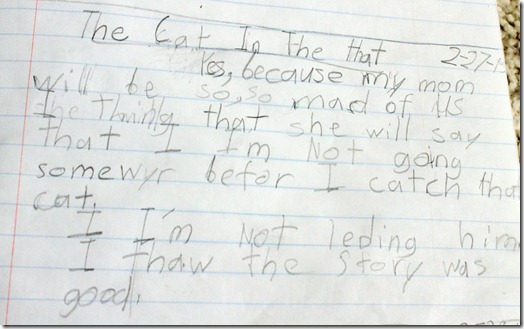 The Cat In The Hat 2-27-1
Yes, because my mom
will be so, so mad of us
the thinly that she will say
that I I'm Not going
somewyr befor I catch tha
cat.
I I'm Not leding him
I thaw the Story was
good.